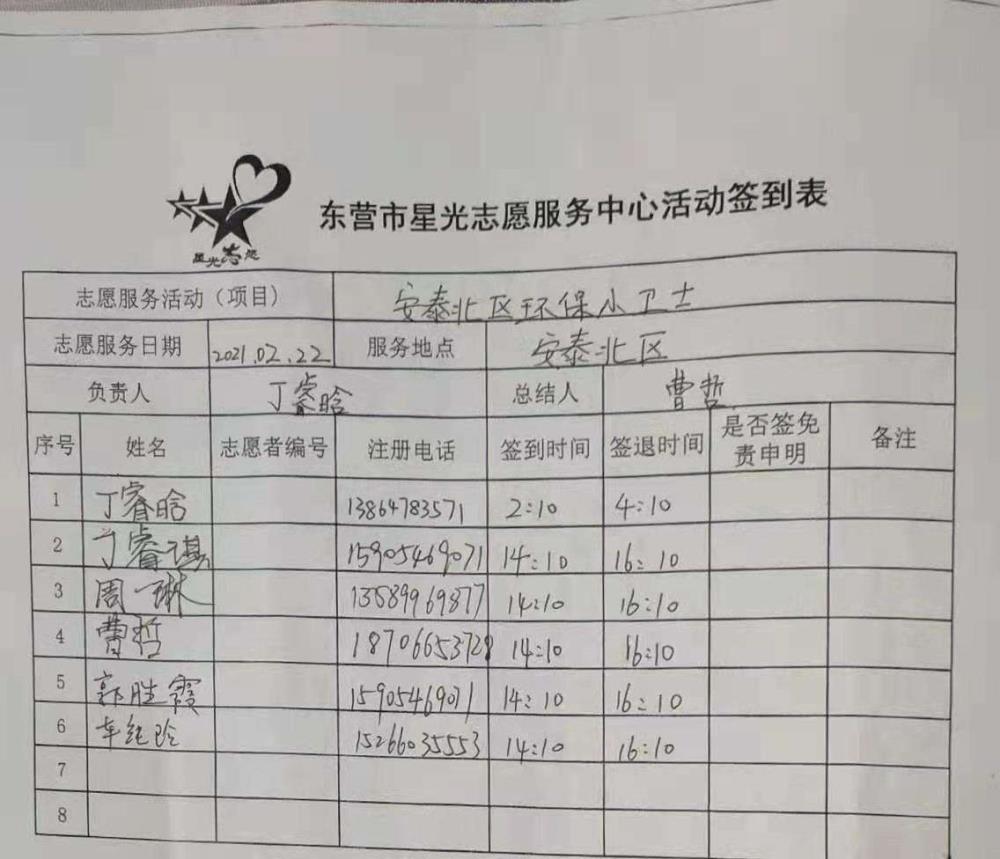 星光志愿
东营市星光志愿服务中心活动签到表
志愿服务活动（项目） 安泰北区环保小卫士
志愿服务日期 2021.02.22 服务地点 安泰北区
负责人 丁睿晗 总结人 曹哲
序号 姓名 志愿者编号 注册电话 签到时间 签退时间 是否签免责申明 备注
1 丁睿晗 13864783571 2:10 4:10
2 丁睿祺 15905469071 14:10 16:10
3 周一琳 13589969877 14:10 16:10
4 曹哲 18706653728 14:10 16:10
5 郭胜霞 15905469071 14:10 16:10
6 车纯玲 15266035553 14:10 16:10
7
8